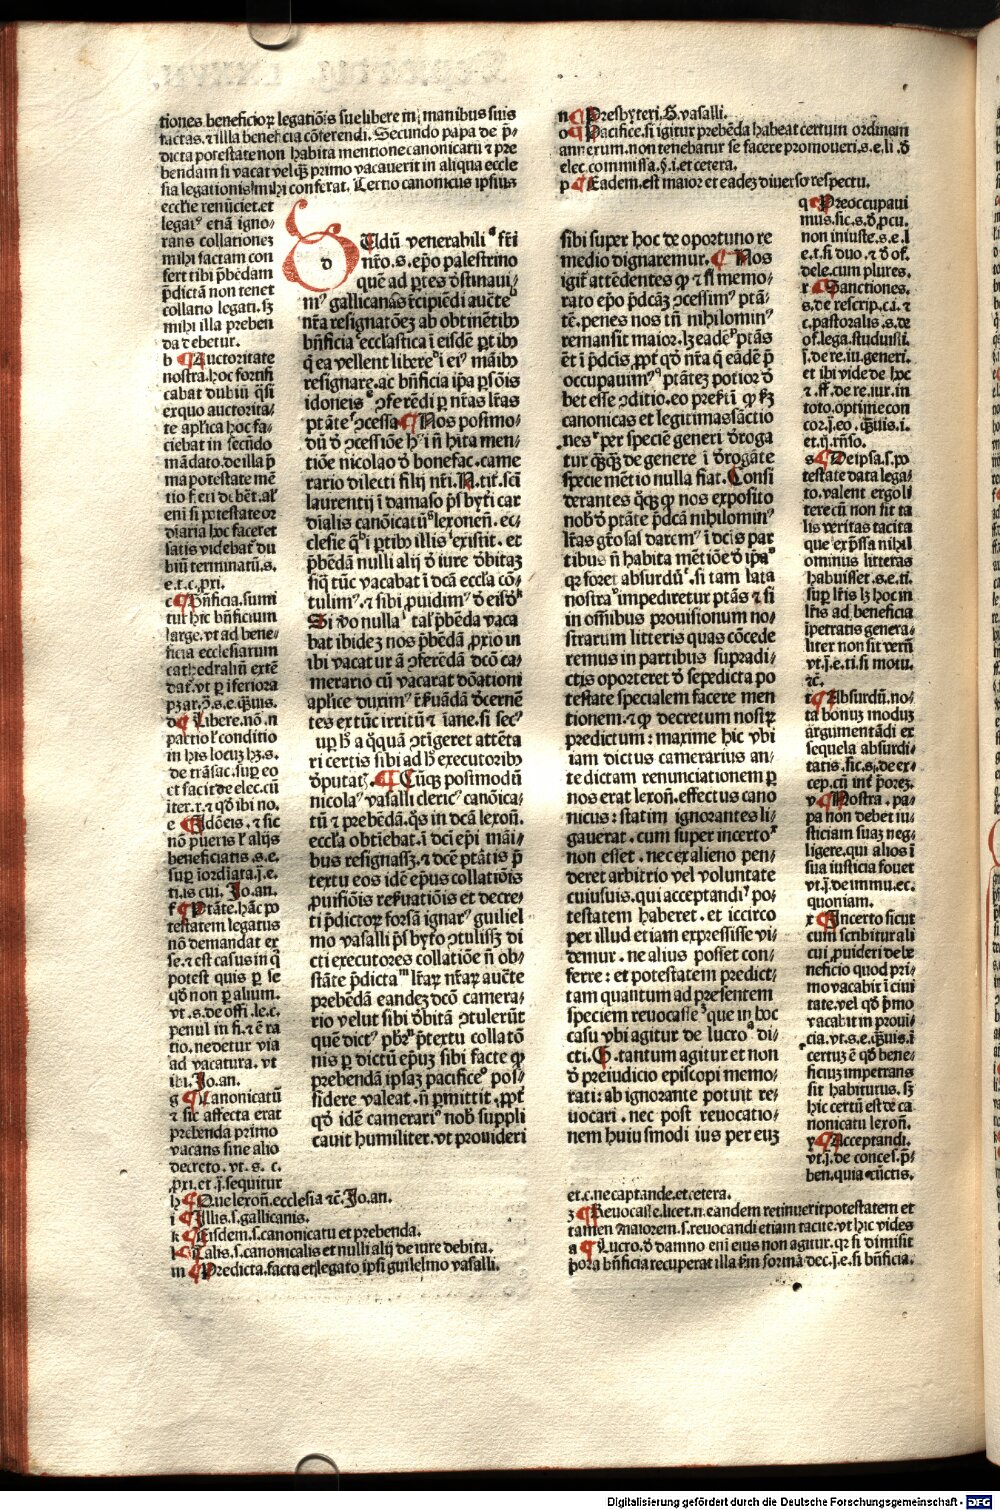 tiones beneficioꝝ legatiōis sue libere in manibus suis
tactas. ⁊ illa beneficia cōferendi. Secundo papa de p̄-
dicta potestate non habita mentione canonicatū ⁊ pre
bendam si vacat velqꝫ primo vacauerit in aliqua eccle
sia legationis mihi conferat. Tertio canonicus ipsius
ecclie renūciet. et
legatꝰ etiā igno-
rans collationez
mihi factam con
fert tibi p̄bēdam
p̄dictā non tenet
collatio legati. sꝫ
mihi illa preben
da debetur.
b ¶ Auctoritate
nostra. hoc fortifi
cabat dubiū q̄si
exquo auctorita-
te aplica hoc fa-
ciebat in secūdo
mādato. de illa p̄
ma potestate mē
tio fieri debet. al'
eni si potestate or
dīaria hoc faceret
satis videbat̄ du
biū terminatū. s.
e. t. c. pxi.
c ¶ Bn̄ficia. sumi
tur hic bn̄ficium
large. vt ad bene-
ficia ecclesiarum
cathedraliū extē
dat̄. vt p̱ iferiora
d ¶ Libere. nō. n
pactio l' conditio
in his locuꝫ hꝫ. s.
de trāsac. sup̱ eo
et facit de elec. cū
iter. r. ⁊ qd̄ ibi no.
e ¶ Idōeis. ⁊ sic
nō pueris l' aliis
beneficiatis. s. e.
sup̱ iordiata. j. e.
ti. is cui. Jo. an.
f ¶ Ptāte. hāc po
testatem legatus
nō demandat ex
se. ⁊ est casus in q̄
potest quis p̱ se
qd̄ non p̱ alium.
vt. s. de offi. le. c.
penul in fi. ⁊ ē ra
tio. ne detur via
ad vacatura. vt
ibi. Jo. an.
g ¶ Canonicatū
⁊ sic affecta erat
prebenda primo
vacans sine alio
decreto. vt. s. c.
pxi. et. j. sequitur
h ¶ Que lexoñ. ecclesia ⁊c. Jo. an.
i ¶ Illis. s. gallicanis.
k ¶ Eisdem. s. canonicatu et prebenda.
l ¶ Talis. s. canonicalis et nulli alij de iure debita.
m ¶ Predicta. facta et legato ipsi guilelmo vasalli.
d
Udū venerabili fr̄i
nr̄o. s. ep̄o palestrino
quē ad p̱tes d̄stinaui-
mꝰ gallicanas r̄cipiēdi aucte
nr̄a resignatōeꝫ ab obtinētibꝫ
bn̄ficia ecclastica i eisdē p̱tibꝫ
q̄ ea vellent libere i eiꝰ māibꝫ
resignare. ac bn̄ficia ip̄a p̱sōis
idoneis ɔferēdi p̱ nr̄as lr̄as
ptāte ɔcessa ¶ Nos postmo-
dū d̄ ɔcessiōe hꝰ iñ hita men-
tiōe nicolao d̄ bonefac. came
rario dilecti filij nr̄i. N. tit. sc̄i
laurentij i damaso p̄sbyt̄i car
dīalis canōicatū lexoneñ. ec-
clesie q̄ i p̱tibꝫ illis existit. et
p̄bēdā nulli alij d̄ iure d̄bitaꝫ
siq̄ tūc vacabat i dc̄a eccl̄a cō-
tulimꝰ. ⁊ sibi ꝓuidimꝰ d̄ eisdē
Si vo nulla tal' p̄bēda vaca
bat ibideꝫ nos p̄bēdā ꝓxīo in
ibi vacatur ā ɔferēdā dc̄o ca-
merario cū vacarat dōationi
aplice duximꝰ r̄ẜuādā d̄cernē
tes ex tūc irritū ⁊ iane. si secꝰ
sup̱ hꝫ a q̄quā ɔtigeret attēta
ri certis sibi ad hꝫ executoribꝫ
d̄putatꝭ. ¶ Cūqꝫ postmodū
nicolaꝰ vasalli clericꝰ canōica-
tū ⁊ prebēdā. q̄s in dc̄a lexoñ.
eccl̄ia obtiebat. i dc̄i ep̄i māi-
bus resignass̄ꝫ. ⁊ dc̄e ptātis p̄
textu eos idē ep̄us collatiōis
ꝓuisiōis reẜuatiōis et decre-
ti p̄dictoꝝ forsā ignarꝰ guiliel
mo vasalli p̄sbyto ɔtuliss̄ꝫ di
cti executores collatiōe n̄ ob-
stāte p̄dicta lr̄aꝝ nr̄aꝝ aucte
prebēdā eandeꝫ dc̄o camera-
rio velut sibi d̄bitā ɔtulerūt
quē dictꝰ pbr̄ p̄textu collatō
nis p̱ dictū ep̄uꝫ sibi facte qꝫ
prebendā ipsaꝫ pacifice pos-
sidere valeat. n̄ p̱mittit. ꝓpt̄
qd̄ idē camerariꝰ nob̄ suppli
cauit humiliter. vt prouideri
n ¶ Presbyteri. G. vasalli.
o ¶ Pacifice. si igitur prebēda habeat certum ordinem
annexum. non tenebatur se facere promoueri. s. e. li. d̄
elec. commissa. §. i. et cetera.
p ¶ Eadem. est maior et eadeꝫ diuerso respectu.
sibi super hoc de oportuno re
medio dignaremur. ¶ Nos
igit̄ attēdentes qꝫ ⁊ si memo-
rato ep̄o p̄dcāꝫ ɔcessimꝰ ptā-
tē. penes nos tn̄ nihilominꝰ
remansit maior. lꝫ eadē ptās
ēt i p̄dcis. ꝓpt̄ qd̄ nr̄a q̄ eādē p̄
occupauimꝰ ptāteꝫ potior d̄
bet esse ɔditio. eo pretextu qꝫ lꝫ
canonicas et legitimas sāctio
nes per speciē generi d̄roga
tur q̄ꝫqꝫ de genere i d̄rogāte
specie mētio nulla fiat. Consi
derantes q̄qꝫ qꝫ nos exposito
nob̄ d̄ ptāte p̄dcā nihilominꝰ
lr̄as gr̄osas darēmꝰ i dcis par
tibus n̄ habita mētiōe d̄ ipā
qꝛ foret absurdū. si tam lata
nostra impediretur ptās ⁊ si
in om̄ibus prouisionum no-
strarum litteris quas cōcede
remus in partibus supradi-
ctis oporteret d̄ sepedicta po
testate specialem facere men
tionem. ⁊ qꝫ decretum nostꝝ
predictum : maxime hic vbi
iam dictus camerarius an-
te dictam renunciationem p̱
nos erat lexoñ. effectus cano
nicus : statim ignorantes li-
gauerat. cum super incerto
non esset. nec ex alieno pen-
deret arbitrio vel voluntate
cuiusuis. qui acceptandi po-
testatem haberet. et iccirco
per illud etiam expressisse vi-
demur. ne alius posset con-
ferre : et potestatem predict-
tam quantum ad presentem
speciem reuocasse que in hoc
casu vbi agitur de lucro di-
cti. G. tantum agitur et non
d̄ preiudicio episcopi memo-
rati : ab ignorante potuit re-
uocari. nec post reuocatio-
nem huiusmodi ius per euꝫ
q ¶ Preoccupaui
mus. sic. s. d̄. pcu.
non iniuste. s. e. l
e. t. si duo. ⁊ d̄ of.
dele. cum plures.
r ¶ Sanctiones.
s. de rescrip. c. i. ⁊
c. pastoralis. s. de
of. lega. studuisti.
j. de re. iu. generi.
et ibi vide de hoc
⁊. ff. de re. iur. in
toto. optime con
cor. j. eo. quis. i.
et. ij. rn̄so.
s ¶ De ipsa. s. po
testate data lega-
to. valent ergo li
tere cū non sit ta
lis veritas tacita
que exp̄ssa nihil
ominus litteras
habuisset. s. e. ti.
sup̱ lr̄is lꝫ hoc in
lr̄is ad beneficia
īpetratis genera-
liter non sit verū
vt. j. e. ti. si motu.
⁊c.
t ¶ Absurdū. no-
ta bonuꝫ moduꝫ
argumentādi ex
sequela absurdi-
tatis. sic. s. de ex-
cep. cū int̄ p̄oreꝫ.
v ¶ Nostra. pa-
pa non debet iu-
sticiam suaꝫ neg-
ligere. qui alios i
sua iusticia fouet
vt. j. de immu. ec.
quoniam.
x ¶ Incerto sicut
cum scribitur ali
cui ꝓuideri de be
neficio quod pri-
mo vacabit i ciui
tate. vel qd̄ p̄mo
vacabit in proui-
cia. vt. s. e. quis. i.
certuꝫ ē qd̄ bene-
ficiuꝫ impetrans
sit habiturus. sꝫ
hic certū est de ca
nonicatu lexoñ.
y ¶ Acceptandi.
vt. j. de conces. p̄-
ben. quia cūctis.
et. c. ne captande. et cetera.
z ¶ Reuocasse. licet. n. eandem retinuerit potestatem et
tamen maiorem. s. reuocandi etiam tacite. vt hic vides
a ¶ Lucro. d̄ damno eni eius non agitur. qꝛ si dimisit
p̄ora bn̄ficia recuperat illa s̄m formā dec. j. e. si bn̄ficia.
Digitalisierung gefördert durch die Deutsche Forschungsgemeinschaft - DFG